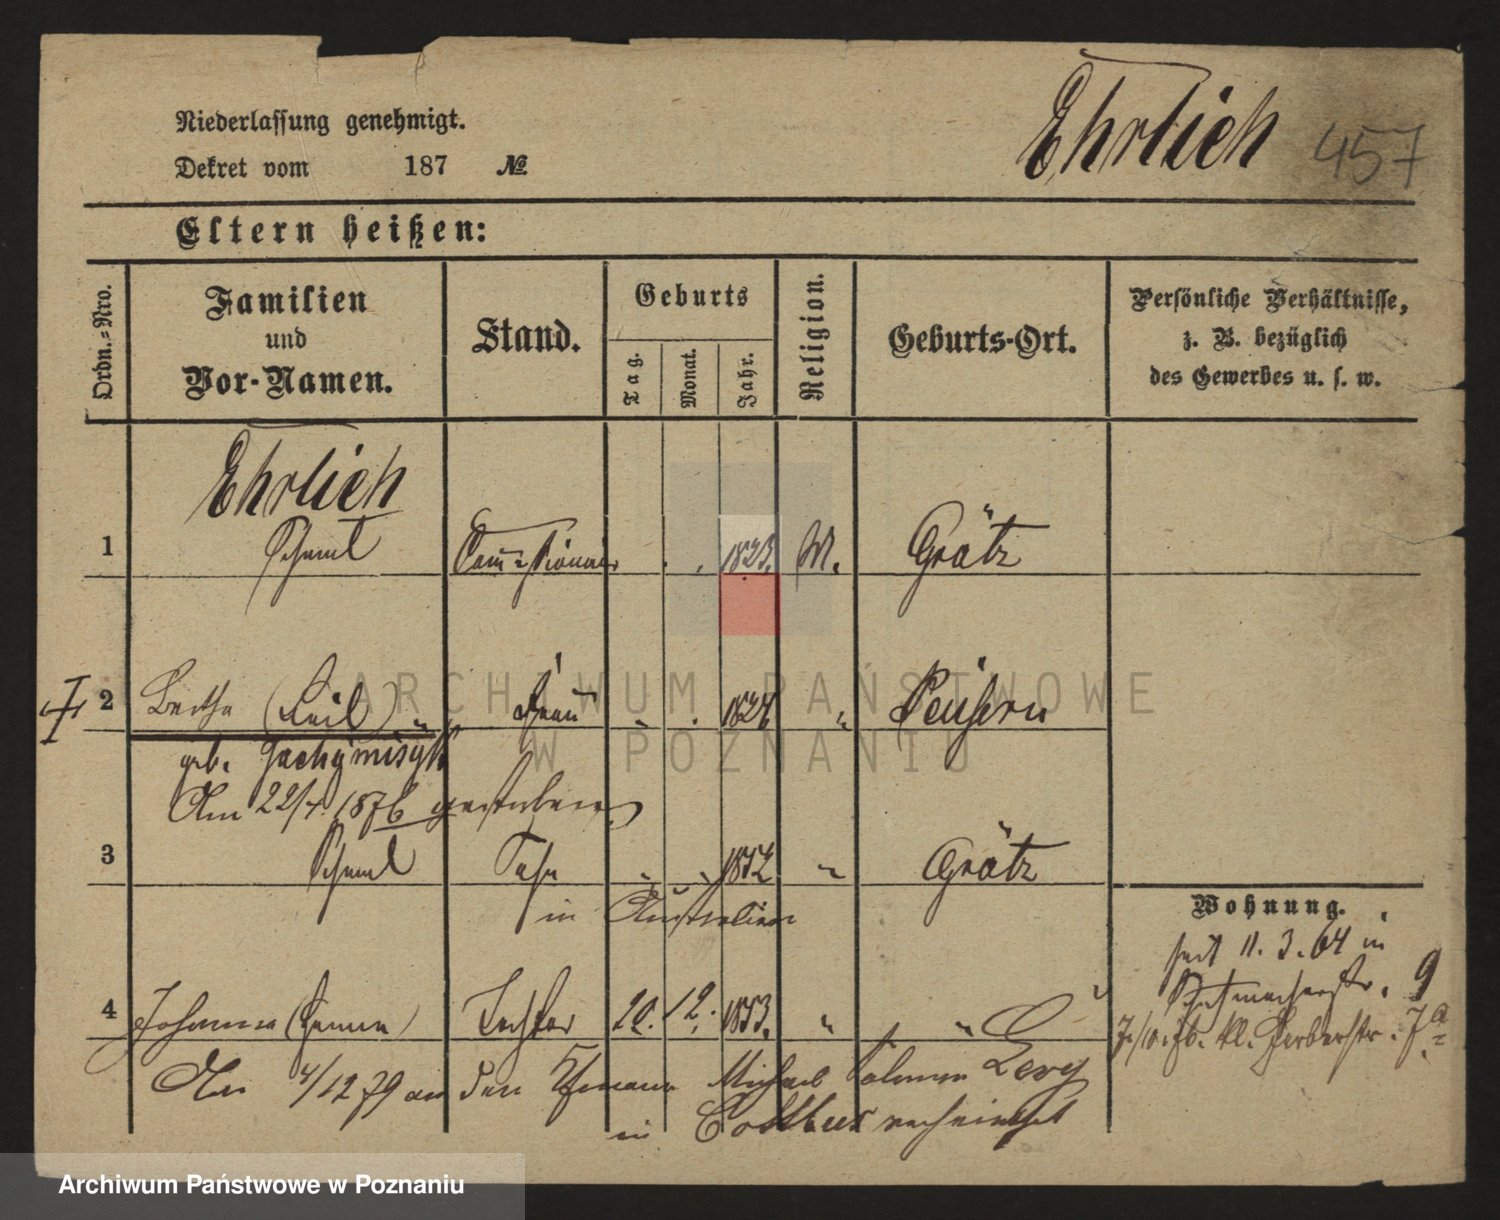 Niederlassung genehmigt.
Dekret vom 187 №
Ehrlich 457
Eltern heißen:
Ordn.-Nro.
Familien
und
Vor-Namen.
Stand.
Geburts
Tag.
Monat.
Jahr.
Religion.
Geburts-Ort.
Persönliche Verhältnisse,
z. B. bezüglich
des Gewerbes u. s. w.
Ehrlich
1 Schmul 1823. M. Grätz
2 Bertha (Keil) Frau " . 1824 " Peisern
geb. Jachymisyk
Am 22/4. 1876 gestorben
3 Schmul Sohn " " 1852 " Grätz
in Australien
4 Johanna (Hanna) Tochter 20. 12. 1853. " "
4/12 79 an den Michael Salomon Levy
in Cottbus verheirathet
Wohnung.
seit 11. 3. 64 in
Schuhmacherstr. 9
7./10. 76. kl. Gerberstr. 7a
ARCHIWUM PAŃSTWOWE
W POZNANIU
Archiwum Państwowe w Poznaniu